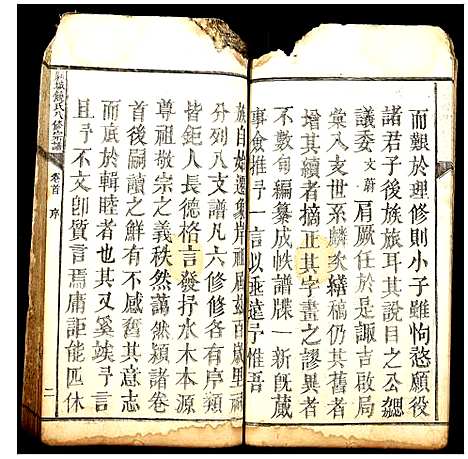 而艱於理修則小子雖恂愗願役
諸君子後族旅耳其說目之公勰
議委文蔚肩厥任於是諏吉啟局
彙入支世系麟次構稿仍其舊者
增其續者摘正其字畫之謬異者
不數旬編纂成帙譜牒一新旣蕆
事僉推予一言以垂遠予惟吾
族自始遷象岸祖居茲百歲里
分列八支譜凡六修修各有序類
皆鉅人長德格言發抒水木本源
尊祖敬宗之義秩然藹然潁諸卷
首後嗣讀之鮮有不感奮其意志
而底於輯睦者也其又奚竢予言
且予不文卽質言焉庸詎能匹休
氏八修宗譜
卷首
序
二